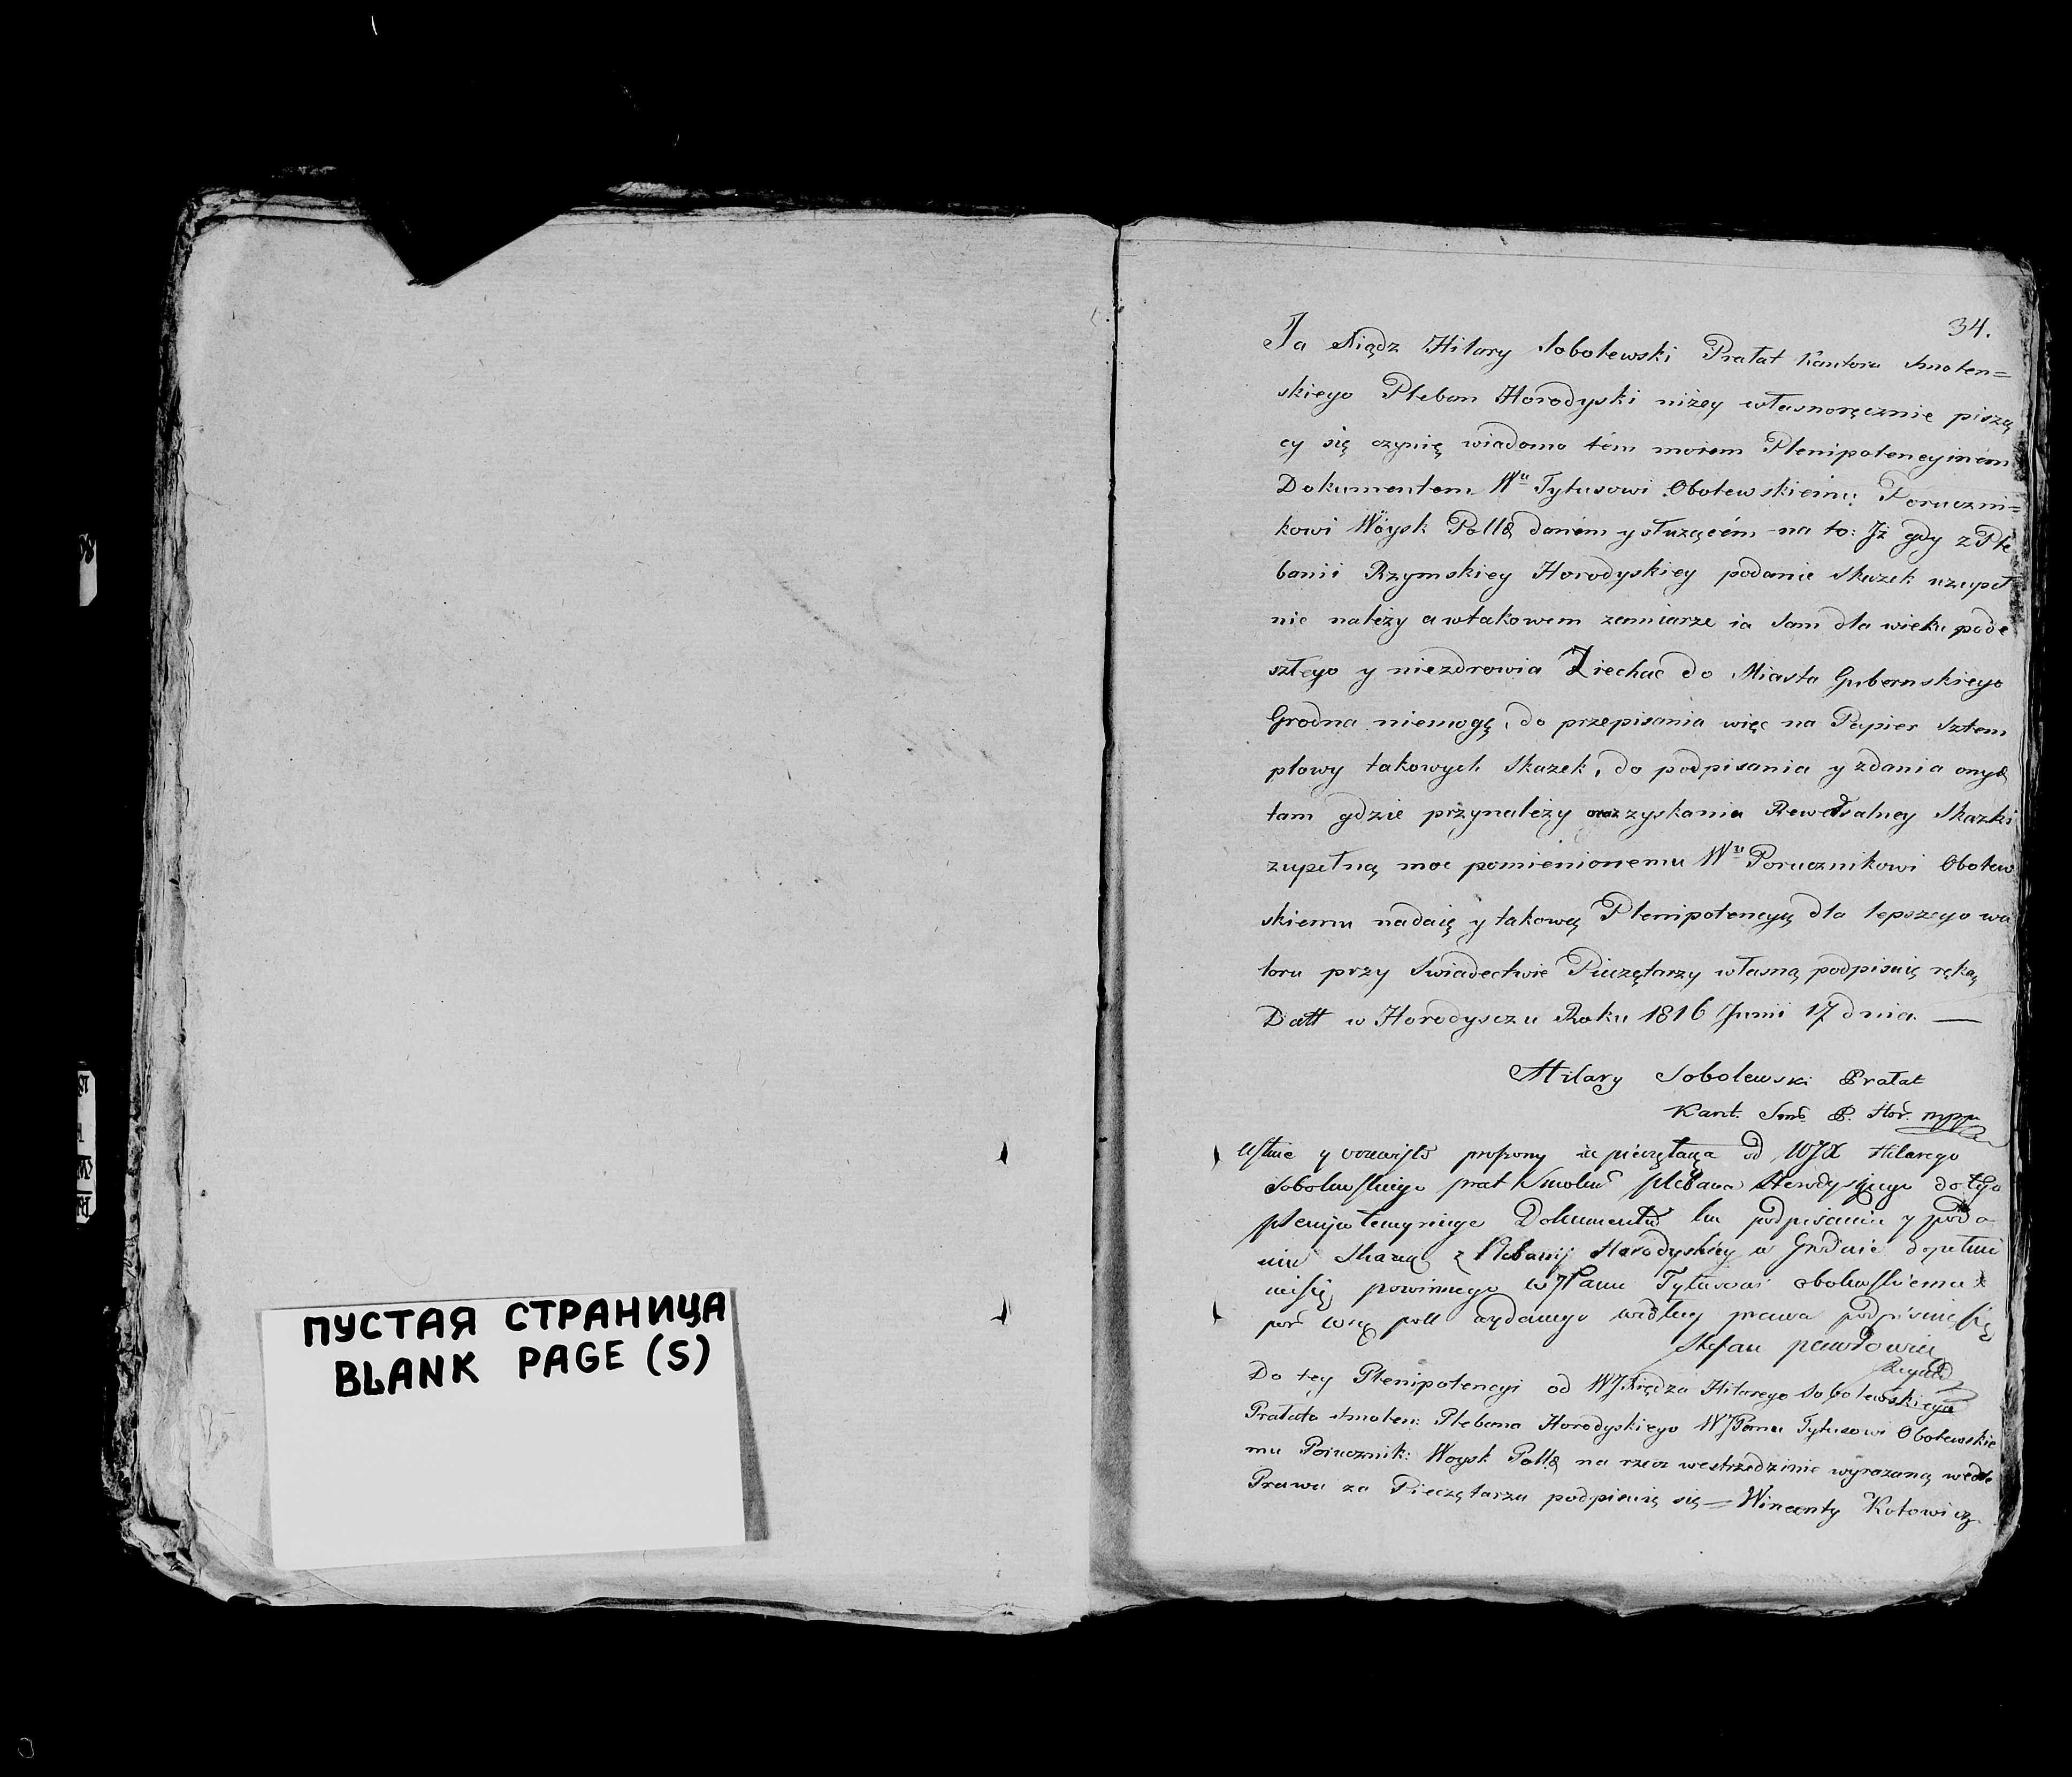 ПУСТАЯ СТРАНИЦА
BLANK PAGE (S)
34.
Ja Xiądz Hilary Sobolewski Prałat Kantora Smolen=
skiego Pleban Horodyski niżey własnoręcznie piszą
cy się czynię wiadomo tém moiem Plenipotencyiném
Dokumentem Wu Tytusowi Obolewskiemu Poruczni=
kowi Woysk Polls daném y służącém na to: Iż gdy z Ple
banii Rzymskiey Horodyskiey podanie Skazek uzupeł
nie należy a w takowem zamiarze ia Sam dla wieku pode
szłego y niezdrowia Ziechać do Miasta Gubernskiego
Grodna niemogę, do przepisania więc na Papier Sztem
plowy takowych Skazek, do podpisania y zdania onych
tam gdzie przynależy oraz zyskania Rewersalney Skazki
zupełną moc pomienionemu Wu Porucznikowi Obolew
skiemu nadaię y takową Plenipotencyą dla lepszego wa
loru przy Swiadectwie Pieczętarzy własną podpisuię ręką
Datt w Horodyszczu Roku 1816 Junii 17 dnia —
Hilary Sobolewski Prałat
Kant. Smo P. Hor. mppa
Ustnie y oczewisto proszony za pieczętarza od WJX Hilarego
Sobolewskiego prał Smoleń plebana Horodyskiego do tego
plenipotencyinego Dokumentu ku podpisaniu y poda
niu Skazek z Plebanij Horodyskiey w Grodnie
powinnego WJPanu Tytusowi Obolewskiemu
por woy poll wydanego według prawa podpisuię się
Stefan pawłowicz
Do tey Plenipotencyi od WJXiędza Hilarego Sobolewskiego
Prałata Smolen: Plebana Horodyskiego WJPanu Tytusowi Obolewskie
mu Porucznik: Woysk Polls na rzecz we strzedzinie wyrażoną wedle
Prawa za Pieczętarza podpisuię się — Wincenty Kotowicz